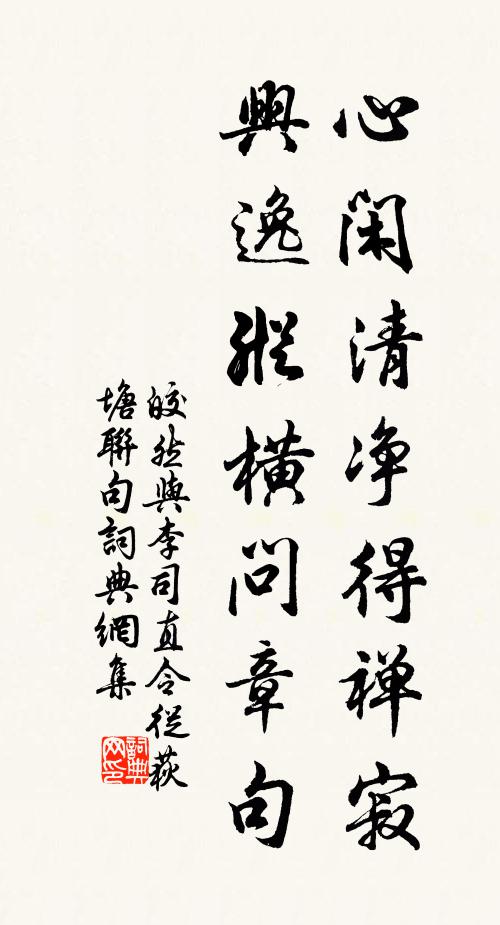 心閑清净得禅寂
興逸縱橫問章句
皎然與李司直令從荻
塘聯句詞典網集
詞典
网印